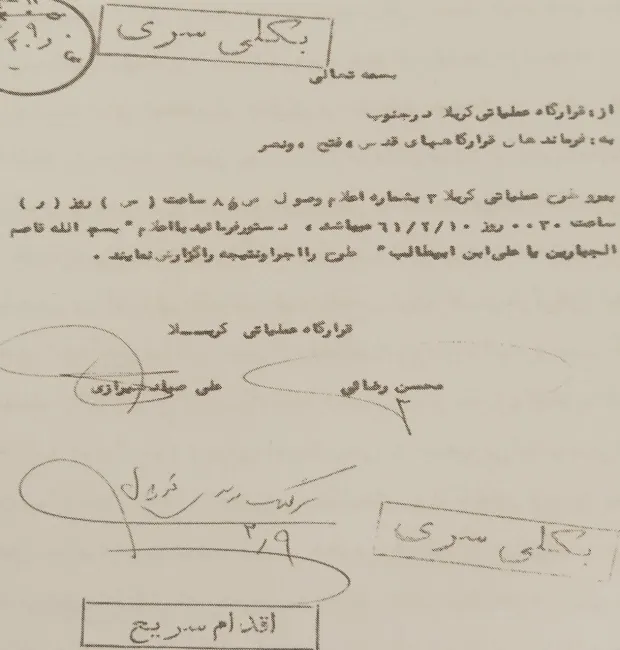 بکلی سری
بسمه تعالی
از: قرارگاه عملیاتی کربلا در جنوب
به: فرماندهان قرارگاههای قدس، فتح، و نصر
پیرو طرح عملیاتی کربلا ۳ بشماره اعلام وصول ساعت ( س ) روز ( ر )
ساعت ۰۰۳۰ روز ۶۱/۲/۱۰ میباشد، دستور فرمائید با اعلام " بسم الله قاصم
الجبارین یا علی ابن ابیطالب " طرح را اجرا و نتیجه را گزارش نمایند .
قرارگاه عملیاتی کربلا
محسن رضائی
علی صیاد شیرازی
۲٫۹
بکلی سری
اقدام سریع